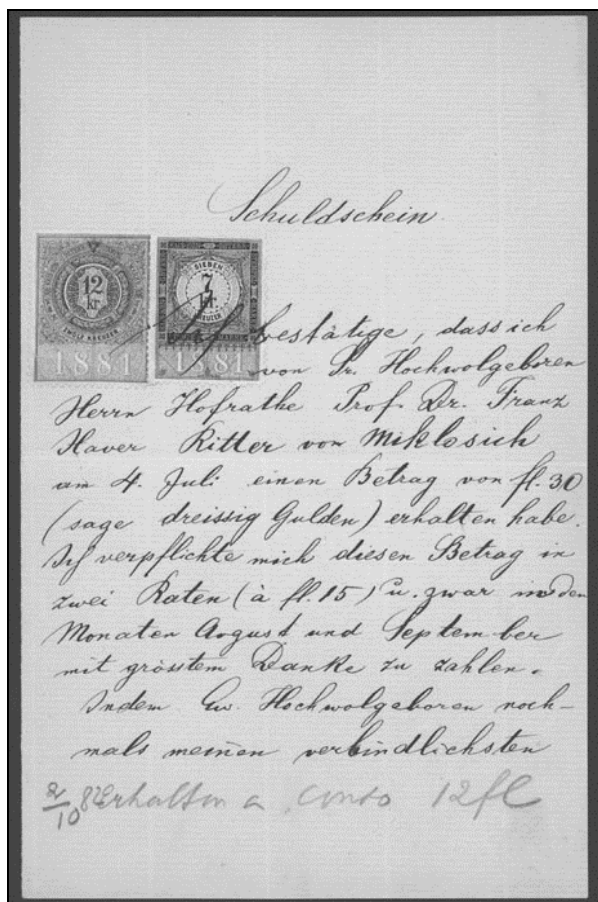 Schuldschein
12 kr
ZWÖLF KREUZER
1881
SIEBEN
7
kr.
KREUZER
1881
Ich bestätige, dass ich
von Sr. Hochwolgeboren
Herrn Hofrathe Prof. Dr. Franz
Xaver Ritter von Miklosich
am 4. Juli einen Betrag von fl. 30
(sage dreissig Gulden) erhalten habe.
Ich verpflichte mich diesen Betrag in
zwei Raten (à fl. 15) u. zwar in den
Monaten August und September
mit grösstem Danke zu zahlen.
Indem Ew. Hochwolgeboren noch-
mals meinen verbindlichsten
2/10 82 Erhalten a conto 12 fl